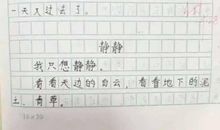 一天又过去了。
静静
我只想静静。
看看天边的白云，看看地下的泥
土、青草。